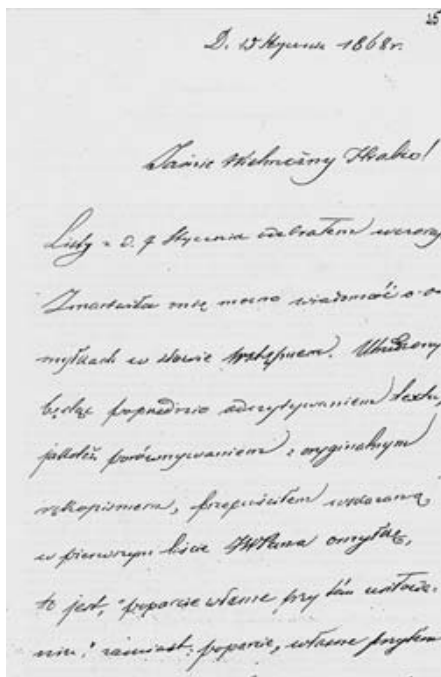 25
D. 15 Stycznia 1868r.
Jaśnie Wielmożny Hrabio!
Listy z d. 9 Stycznia odebrałem wczoraj
Zmartwiła mię mocno wiadomość o o-
myłkach w słowie wstępnem. Utrudzony
będąc poprzednio odczytywaniem textu,
jakoteż porównywaniem z oryginalnym
rękopismem, przepuściłem wskazaną
w pierwszym liście JWPana omyłkę,
to jest, "poparcie własne przy tém usiłowa-
niu," zamiast: poparcie, własne przytem